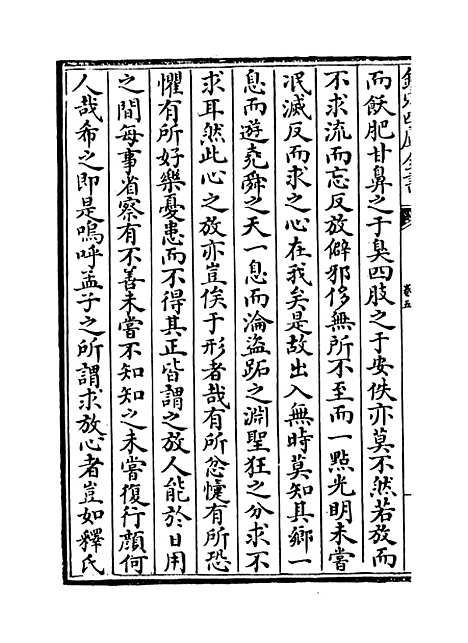 欽定四庫全書
卷五
而飫肥甘鼻之于臭四肢之于安佚亦莫不然若放而
不求流而忘反放僻邪侈無所不至而一點光明未嘗
泯滅反而求之心在我矣是故出入無時莫知其鄉一
息而遊堯舜之天一息而淪盜跖之淵聖狂之分求不
求耳然此心之放亦豈俟于形者哉有所忿懥有所恐
懼有所好樂憂患而不得其正皆謂之放人能於日用
之間每事省察有不善未嘗不知知之未嘗復行顔何
人哉希之即是嗚呼孟子之所謂求放心者豈如釋氏